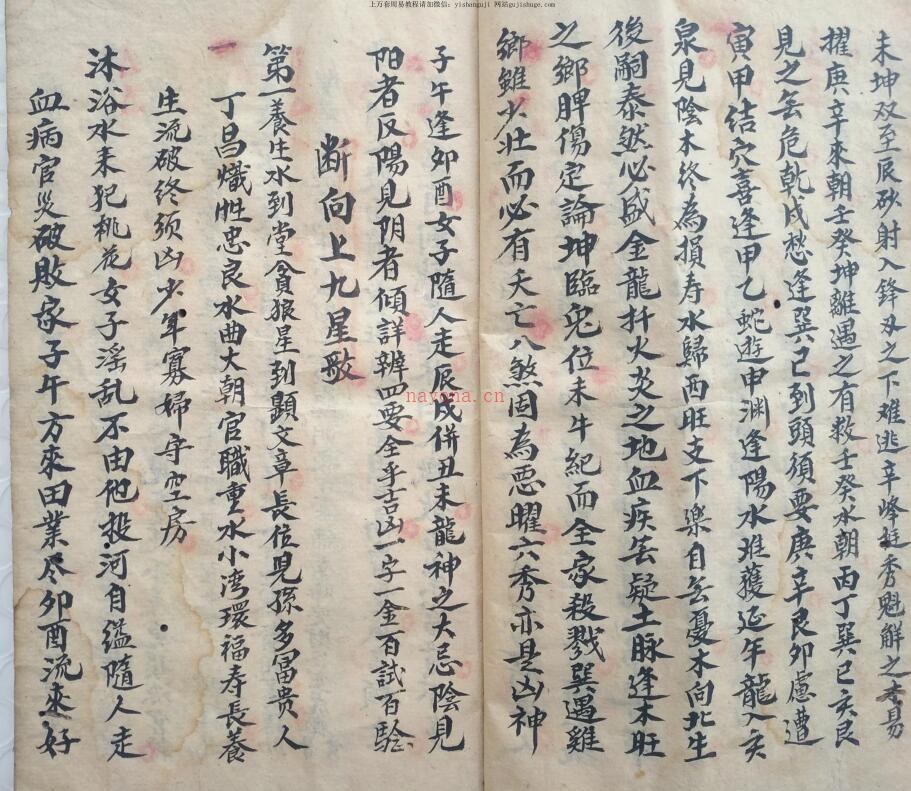 上万套周易教程请加微信：yishanguji 网站gujishuge.com
未坤双至辰砂射入鋒刃之下难逃辛峰挺秀魁解之易
擢庚辛來朝壬癸坤離遇之有救壬癸水朝丙丁巽巳亥艮
見之無危乾戌愁逢巽巳到頭須要庚辛艮卯慮遭
寅甲結穴喜逢甲乙蛇遊申渊逢陽水难獲延年龍入亥
泉見陰木終為損寿水歸酉旺支下樂自無憂木向北生
後嗣泰然必盛金龍扦火炎之地血疾無疑土脉逢木旺
之鄉脾傷定論坤臨兑位未牛紀而全家殺戮巽遇雞
鄉雖少壮而必有夭亡八煞固為悪曜六秀亦是凶神
子午逢卯酉女子隨人走辰戌併丑未龍神之大忌陰見
阳者反陽見阴者傾詳辨四要全乎吉凶一字一金百試百驗
断向上九星歌
第一養生水到堂貪狼星到顕文章長位児孫多富贵人
丁昌熾性忠良水曲大朝官職重水小湾環福寿長養
生流破終须凶少年寡婦守空房
沐浴水来犯桃花女子滛乱不由他投河自缢隨人走
血病官災破敗家子午方來田業尽卯酉流來好
nayona.cn